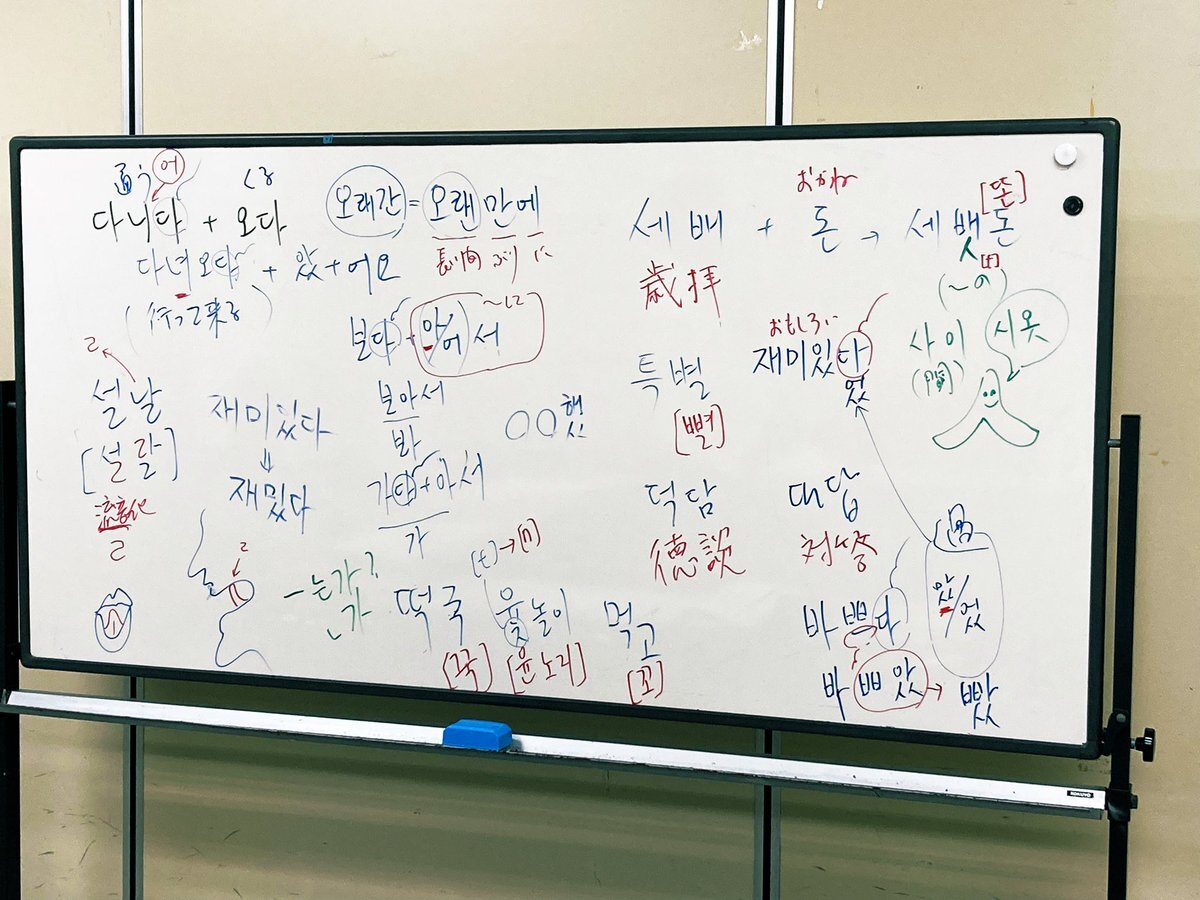 通う 어 くる
다니다 + 오다
다녀오다 + 았+어요
(行って来る)
오래간 = 오랜만에
長い間 ぶり に
보다 + 아/어 서 ~して
보아서
봐
가다+아서
가
ㄹ
설날
[설랄]
流音化
ㄹ
재미있다
⇓
재밌다
○○했
ㄹ
-는가?
ㄴ가
떡국
[꾹]
[t]→[n]
윷놀이
[윤노리]
먹고
[꼬]
おかね
세배 + 돈 → 세뱃돈
[똔]
[t]
歳拝
(~の)
사이 시옷
(間)
おもしろい
재미있다
었
특별
[뼐]
덕담
徳談
대답
対答
過
았/었
바쁘다
바빠았 → 빴
KOKUYO